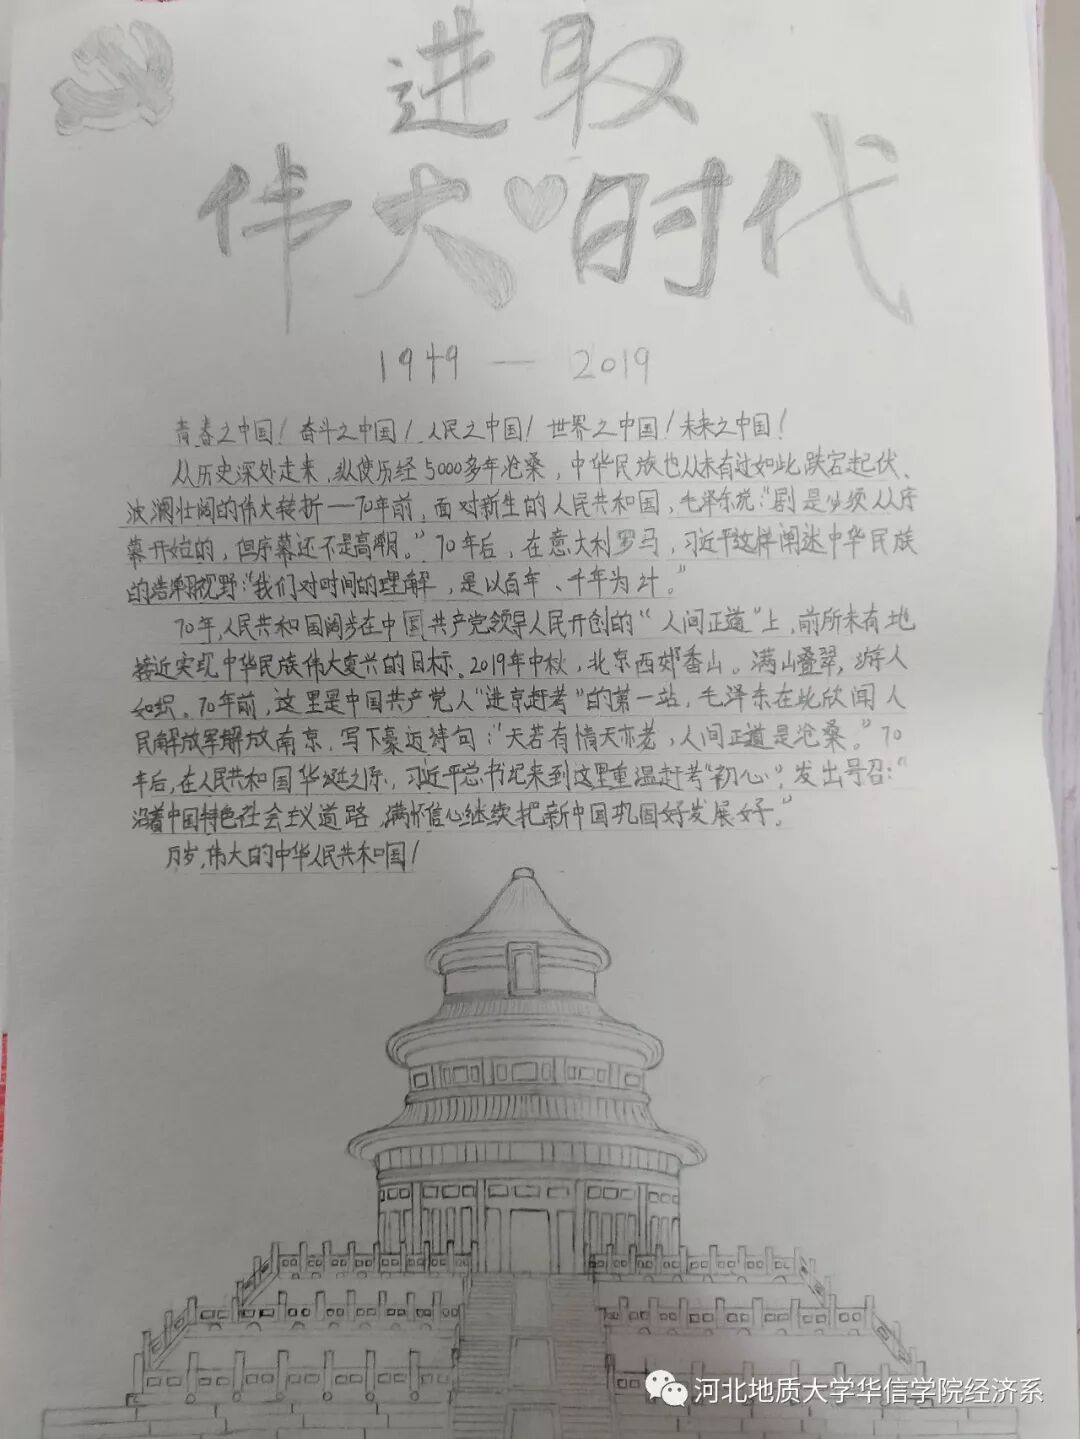 进取
伟大时代
1949 — 2019
青春之中国！奋斗之中国！人民之中国！世界之中国！未来之中国！
从历史深处走来，纵使历经5000多年沧桑，中华民族也从未有过如此跌宕起伏、
波澜壮阔的伟大转折——70年前，面对新生的人民共和国，毛泽东说："剧是必须从序
幕开始的，但序幕还不是高潮。"70年后，在意大利罗马，习近平这样阐述中华民族
的浩瀚视野："我们对时间的理解，是以百年、千年为计。"
70年，人民共和国阔步在中国共产党领导人民开创的"人间正道"上，前所未有地
接近实现中华民族伟大复兴的目标。2019年中秋，北京西郊香山。满山叠翠，游人
如织。70年前，这里是中国共产党人"进京赶考"的第一站，毛泽东在此欣闻人
民解放军解放南京，写下豪迈诗句："天若有情天亦老，人间正道是沧桑。"70
年后，在人民共和国华诞之际，习近平总书记来到这里重温赶考"初心"，发出号召："
沿着中国特色社会主义道路，满怀信心继续把新中国巩固好发展好。"
万岁，伟大的中华人民共和国！
河北地质大学华信学院经济系